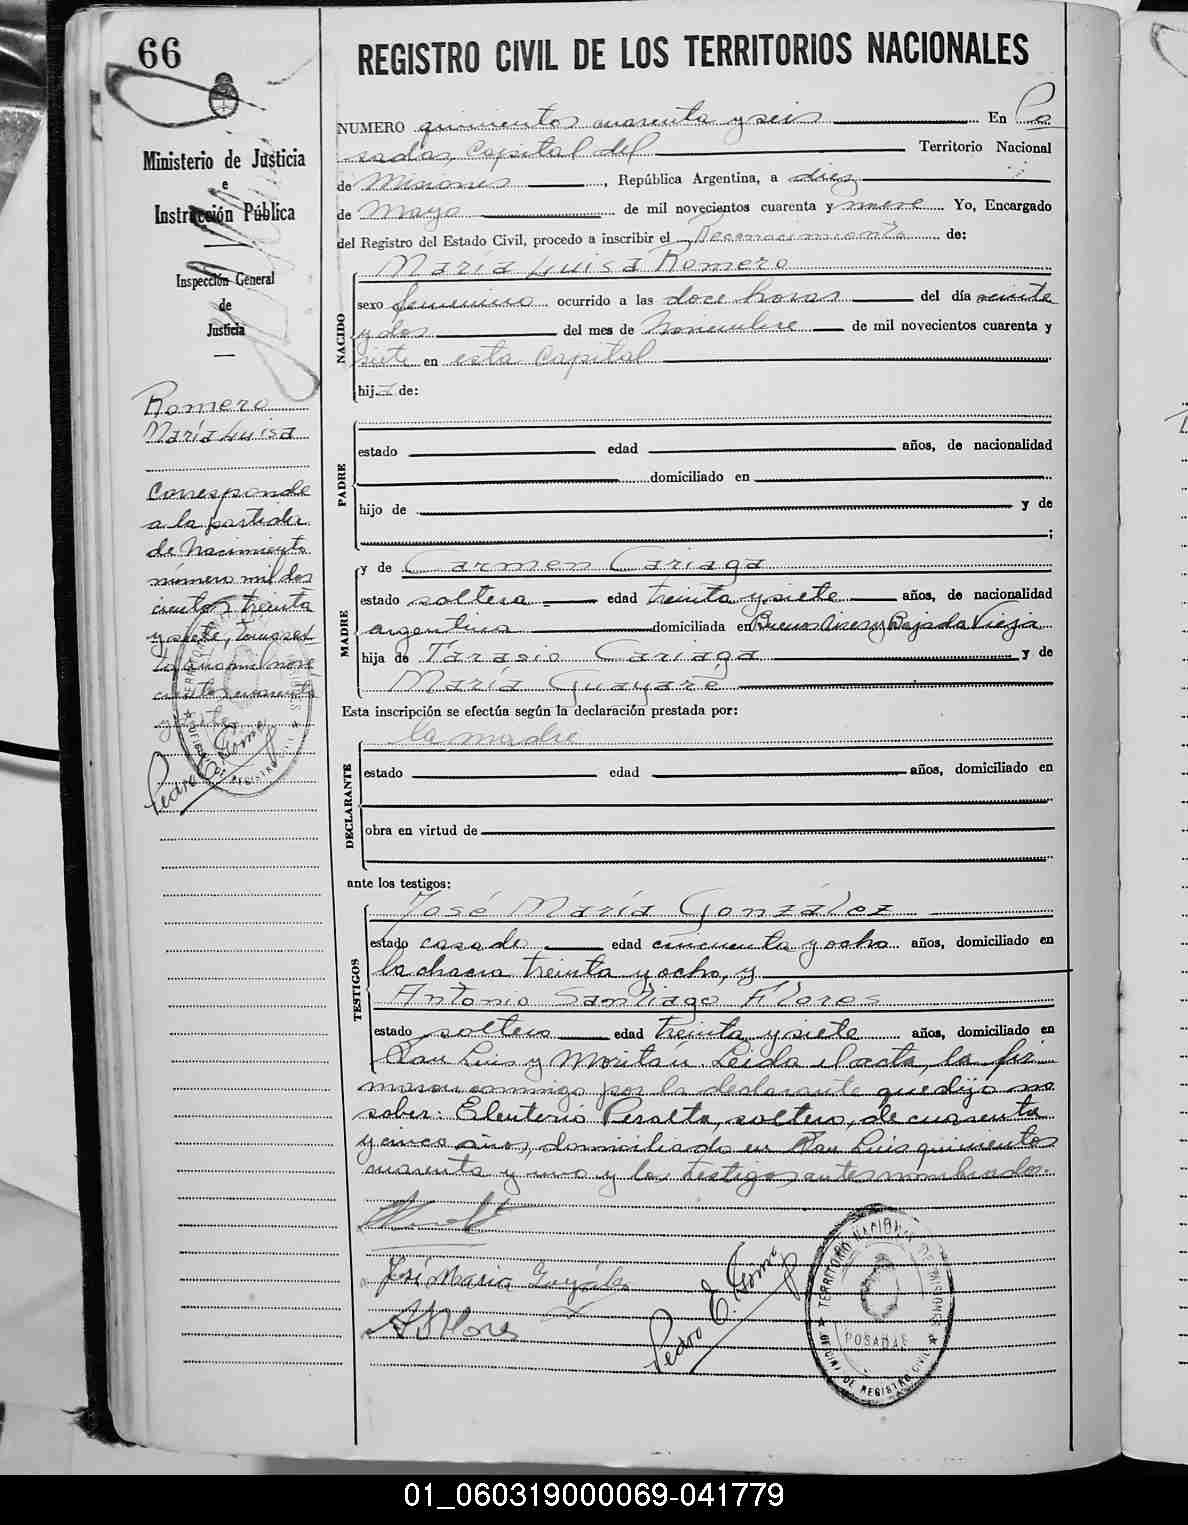 66
REGISTRO CIVIL DE LOS TERRITORIOS NACIONALES
Ministerio de Justicia
e
Instrucción Pública
Inspección General
de
Justicia
Romero
María Luisa
Corresponde
a la partida
de Nacimiento
número mil dos
cientos treinta
y siete, tomo sex
to año mil nove
cientos cuarenta
y siete
Pedro E. Gómez
NUMERO quinientos cuarenta y seis En Po
sadas, Capital del Territorio Nacional
de Misiones, República Argentina, a diez
de Mayo de mil novecientos cuarenta y nueve Yo, Encargado
del Registro del Estado Civil, procedo a inscribir el Reconocimiento de:
NACIDO
María Luisa Romero
sexo femenino ocurrido a las doce horas del día veinte
y dos del mes de Noviembre de mil novecientos cuarenta y
siete en esta Capital
hija de:
PADRE
estado edad años, de nacionalidad
domiciliado en
hijo de y de
;
MADRE
y de Carmen Cariaga
estado soltera edad treinta y siete años, de nacionalidad
argentina domiciliada en Buenos Aires y Bajada Vieja
hija de Tarasio Cariaga y de
María Guayaré
Esta inscripción se efectúa según la declaración prestada por:
DECLARANTE
la madre
estado edad años, domiciliado en
obra en virtud de
ante los testigos:
TESTIGOS
José María González
estado casado edad cincuenta y ocho años, domiciliado en
la chacra treinta y ocho, y
Antonio Santiago Flores
estado soltero edad treinta y siete años, domiciliado en
San Luis y Moritán Leida el acta, la fir
maron conmigo por la declarante que dijo no
saber: Eleuterio Peralta, soltero, de cuarenta
y cinco años, domiciliado en San Luis quinientos
cuarenta y uno y los testigos antes nombrados.
José María González
A S Flores
Pedro E. Gómez
TERRITORIO NACIONAL DE MISIONES
POSADAS
OFICINA DE REGISTRO CIVIL
01_060319000069-041779